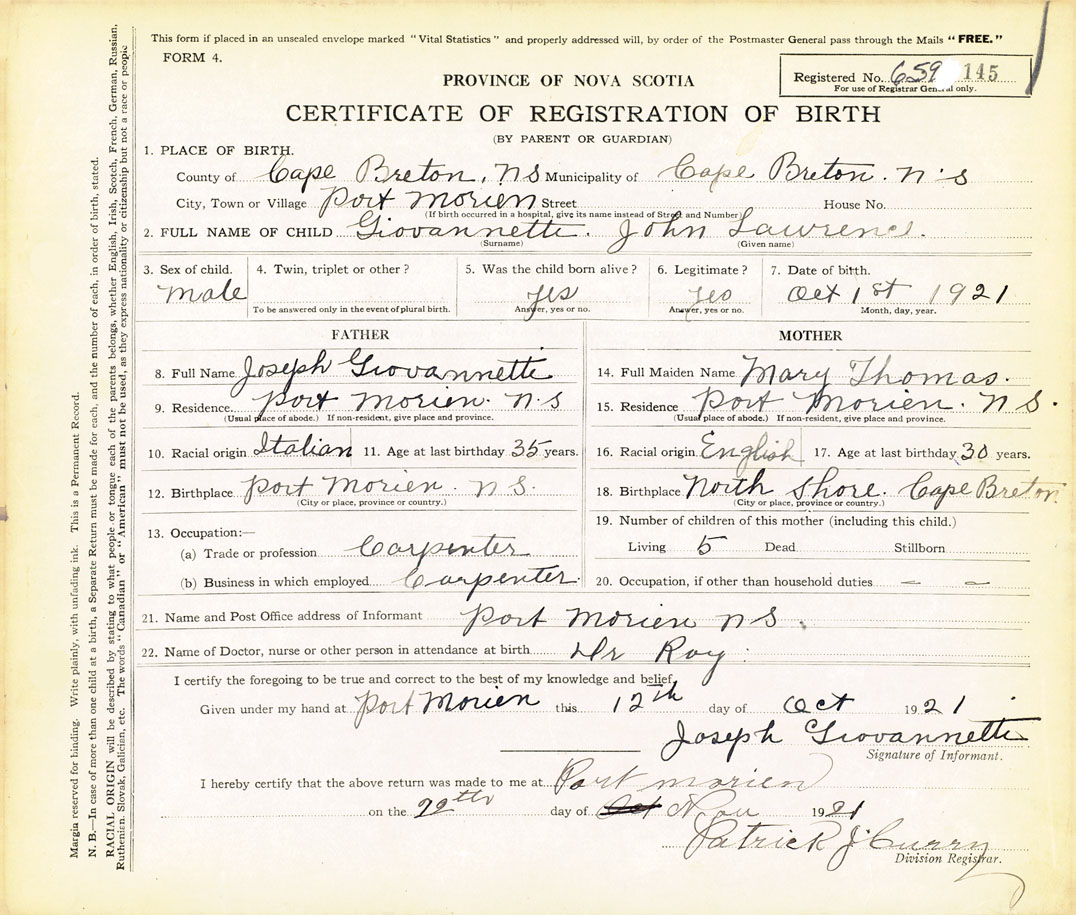 This form if placed in an unsealed envelope marked "Vital Statistics" and properly addressed will, by order of the Postmaster General pass through the Mails "FREE."
FORM 4.
Registered No. 659 145
For use of Registrar General only.
PROVINCE OF NOVA SCOTIA
CERTIFICATE OF REGISTRATION OF BIRTH
(BY PARENT OR GUARDIAN)
1. PLACE OF BIRTH.
County of Cape Breton, NS Municipality of Cape Breton. N.S
City, Town or Village Port Morien Street House No.
(If birth occurred in a hospital, give its name instead of Street and Number)
2. FULL NAME OF CHILD Giovannetti. John Lawrence.
(Surname) (Given name)
3. Sex of child. 4. Twin, triplet or other? 5. Was the child born alive? 6. Legitimate? 7. Date of birth.
Male yes yes Oct 1st 1921
To be answered only in the event of plural birth. Answer, yes or no. Answer, yes or no. Month, day, year.
FATHER MOTHER
8. Full Name Joseph Giovannetti 14. Full Maiden Name Mary Thomas.
9. Residence Port Morien. N.S 15. Residence Port Morien. N S.
(Usual place of abode.) If non-resident, give place and province. (Usual place of abode.) If non-resident, give place and province.
10. Racial origin Italian 11. Age at last birthday 35 years. 16. Racial origin English 17. Age at last birthday 30 years.
12. Birthplace Port Morien. N S. 18. Birthplace North Shore. Cape Breton.
(City or place, province or country.) (City or place, province or country.)
13. Occupation:— 19. Number of children of this mother (including this child.)
(a) Trade or profession Carpenter Living 5 Dead Stillborn
(b) Business in which employed Carpenter. 20. Occupation, if other than household duties – –
21. Name and Post Office address of Informant Port Morien N S.
22. Name of Doctor, nurse or other person in attendance at birth Dr Roy
I certify the foregoing to be true and correct to the best of my knowledge and belief.
Given under my hand at Port Morien this 12th day of Oct 1921
Joseph Giovannetti
Signature of Informant.
I hereby certify that the above return was made to me at Port Morien
on the day of Oct Nov 1921
Patrick J Curry
Division Registrar.
Margin reserved for binding. Write plainly, with unfading ink. This is a Permanent Record.
N. B.—In case of more than one child at a birth, a Separate Return must be made for each, and the number of each, in order of birth, stated.
RACIAL ORIGIN will be described by stating to what people or tongue each of the parents belongs, whether English, Irish, Scotch, French, German, Russian,
Ruthenien, Slovak, Galician, etc. The words "Canadian" or "American" must not be used, as they express nationality or citizenship but not a race or people